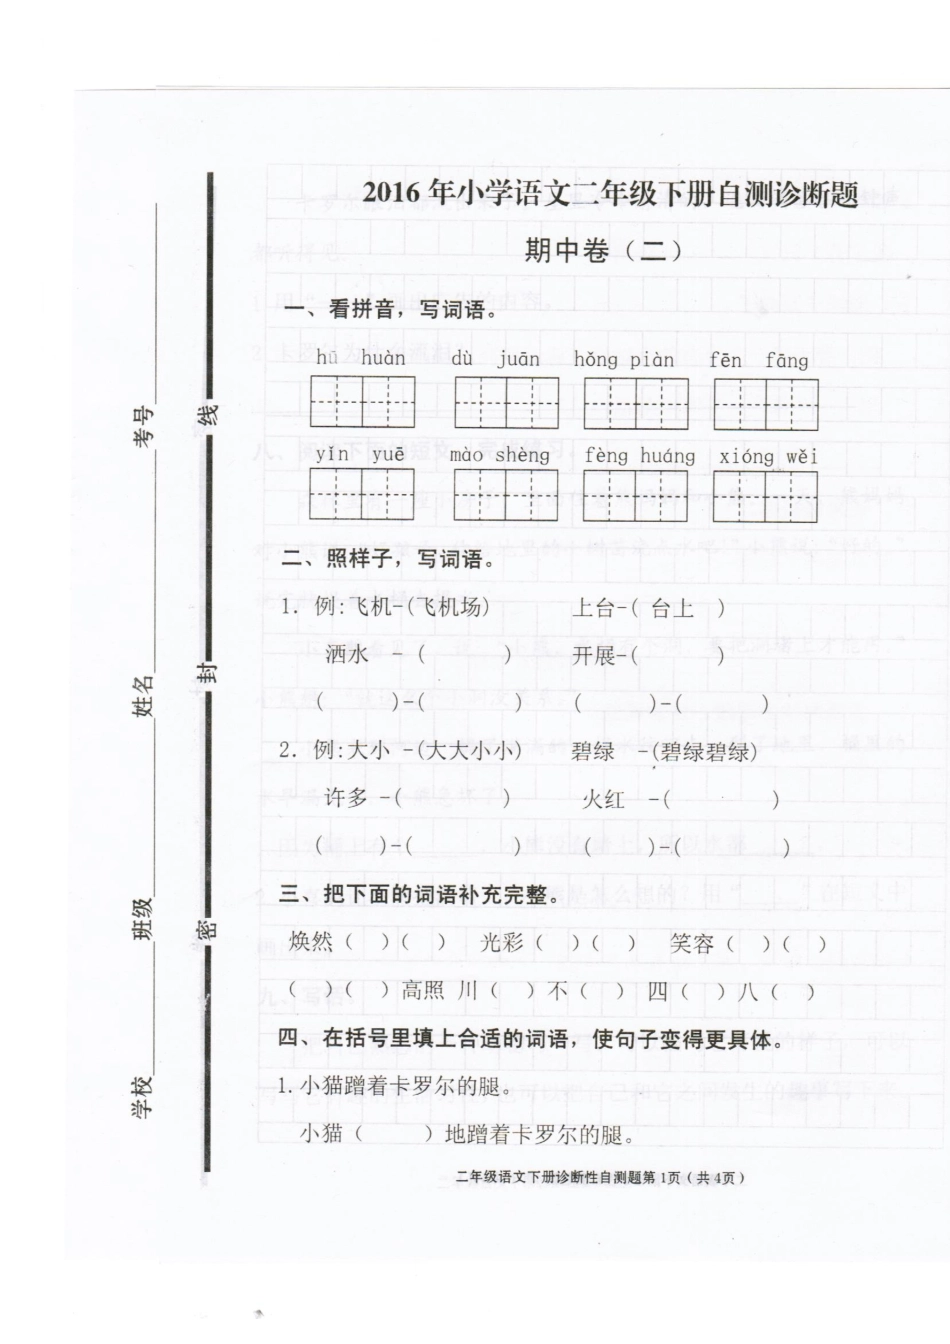 2016年小学语文二年级下册自测诊断题
期中卷（二）
一、看拼音，写词语。
hū huàn dù juān hǒng piàn fēn fāng
yīn yuē mào shèng fèng huáng xióng wěi
二、照样子，写词语。
1. 例:飞机-(飞机场) 上台-( 台上 )
洒水 -( ) 开展-( )
( )-( ) ( )-( )
2. 例:大小 -(大大小小) 碧绿 -(碧绿碧绿)
许多 -( ) 火红 -( )
( )-( ) ( )-( )
三、把下面的词语补充完整。
焕然（ ）（ ） 光彩（ ）（ ） 笑容（ ）（ ）
（ ）（ ）高照 川（ ）不（ ） 四（ ）八（ ）
四、在括号里填上合适的词语，使句子变得更具体。
1.小猫蹭着卡罗尔的腿。
小猫（ ）地蹭着卡罗尔的腿。
二年级语文下册诊断性自测题第1页(共4页)
考号
姓名
班级
学校
线
封
密